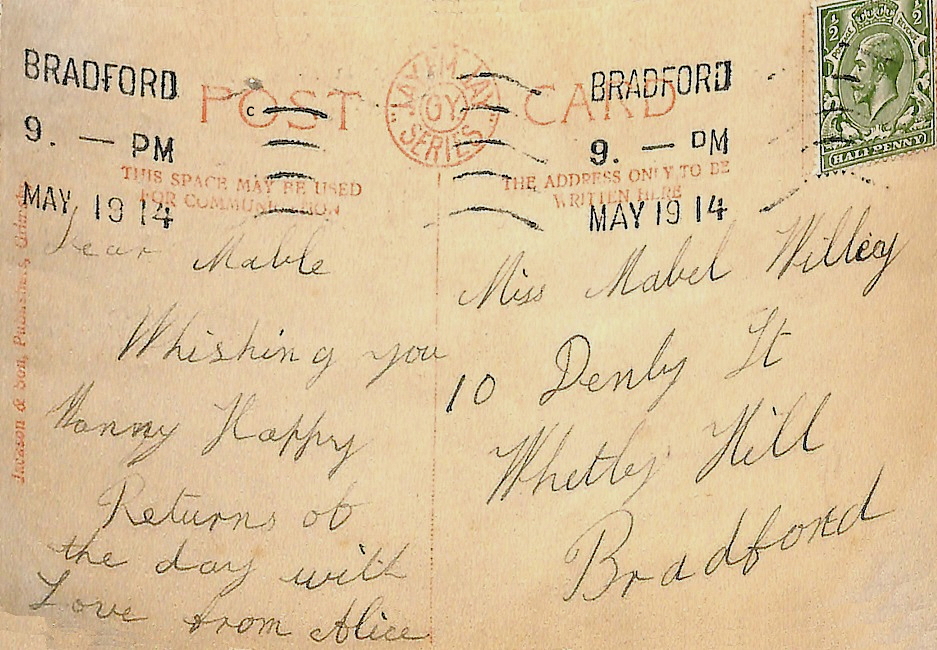 BRADFORD
9. — PM
MAY 19 14
C
BRADFORD
9. — PM
MAY 19 14
½ ½
HALFPENNY
POST CARD
"JAY EM JAY"
GY
SERIES
THIS SPACE MAY BE USED
FOR COMMUNICATION
THE ADDRESS ONLY TO BE
WRITTEN HERE
Jackson & Son, Publishers, Grimsby
Dear Mable
Whishing you
Manny Happy
Returns of
the day with
Love from Alice
Miss Mabel Willey
10 Denby St
Whetley Hill
Bradford